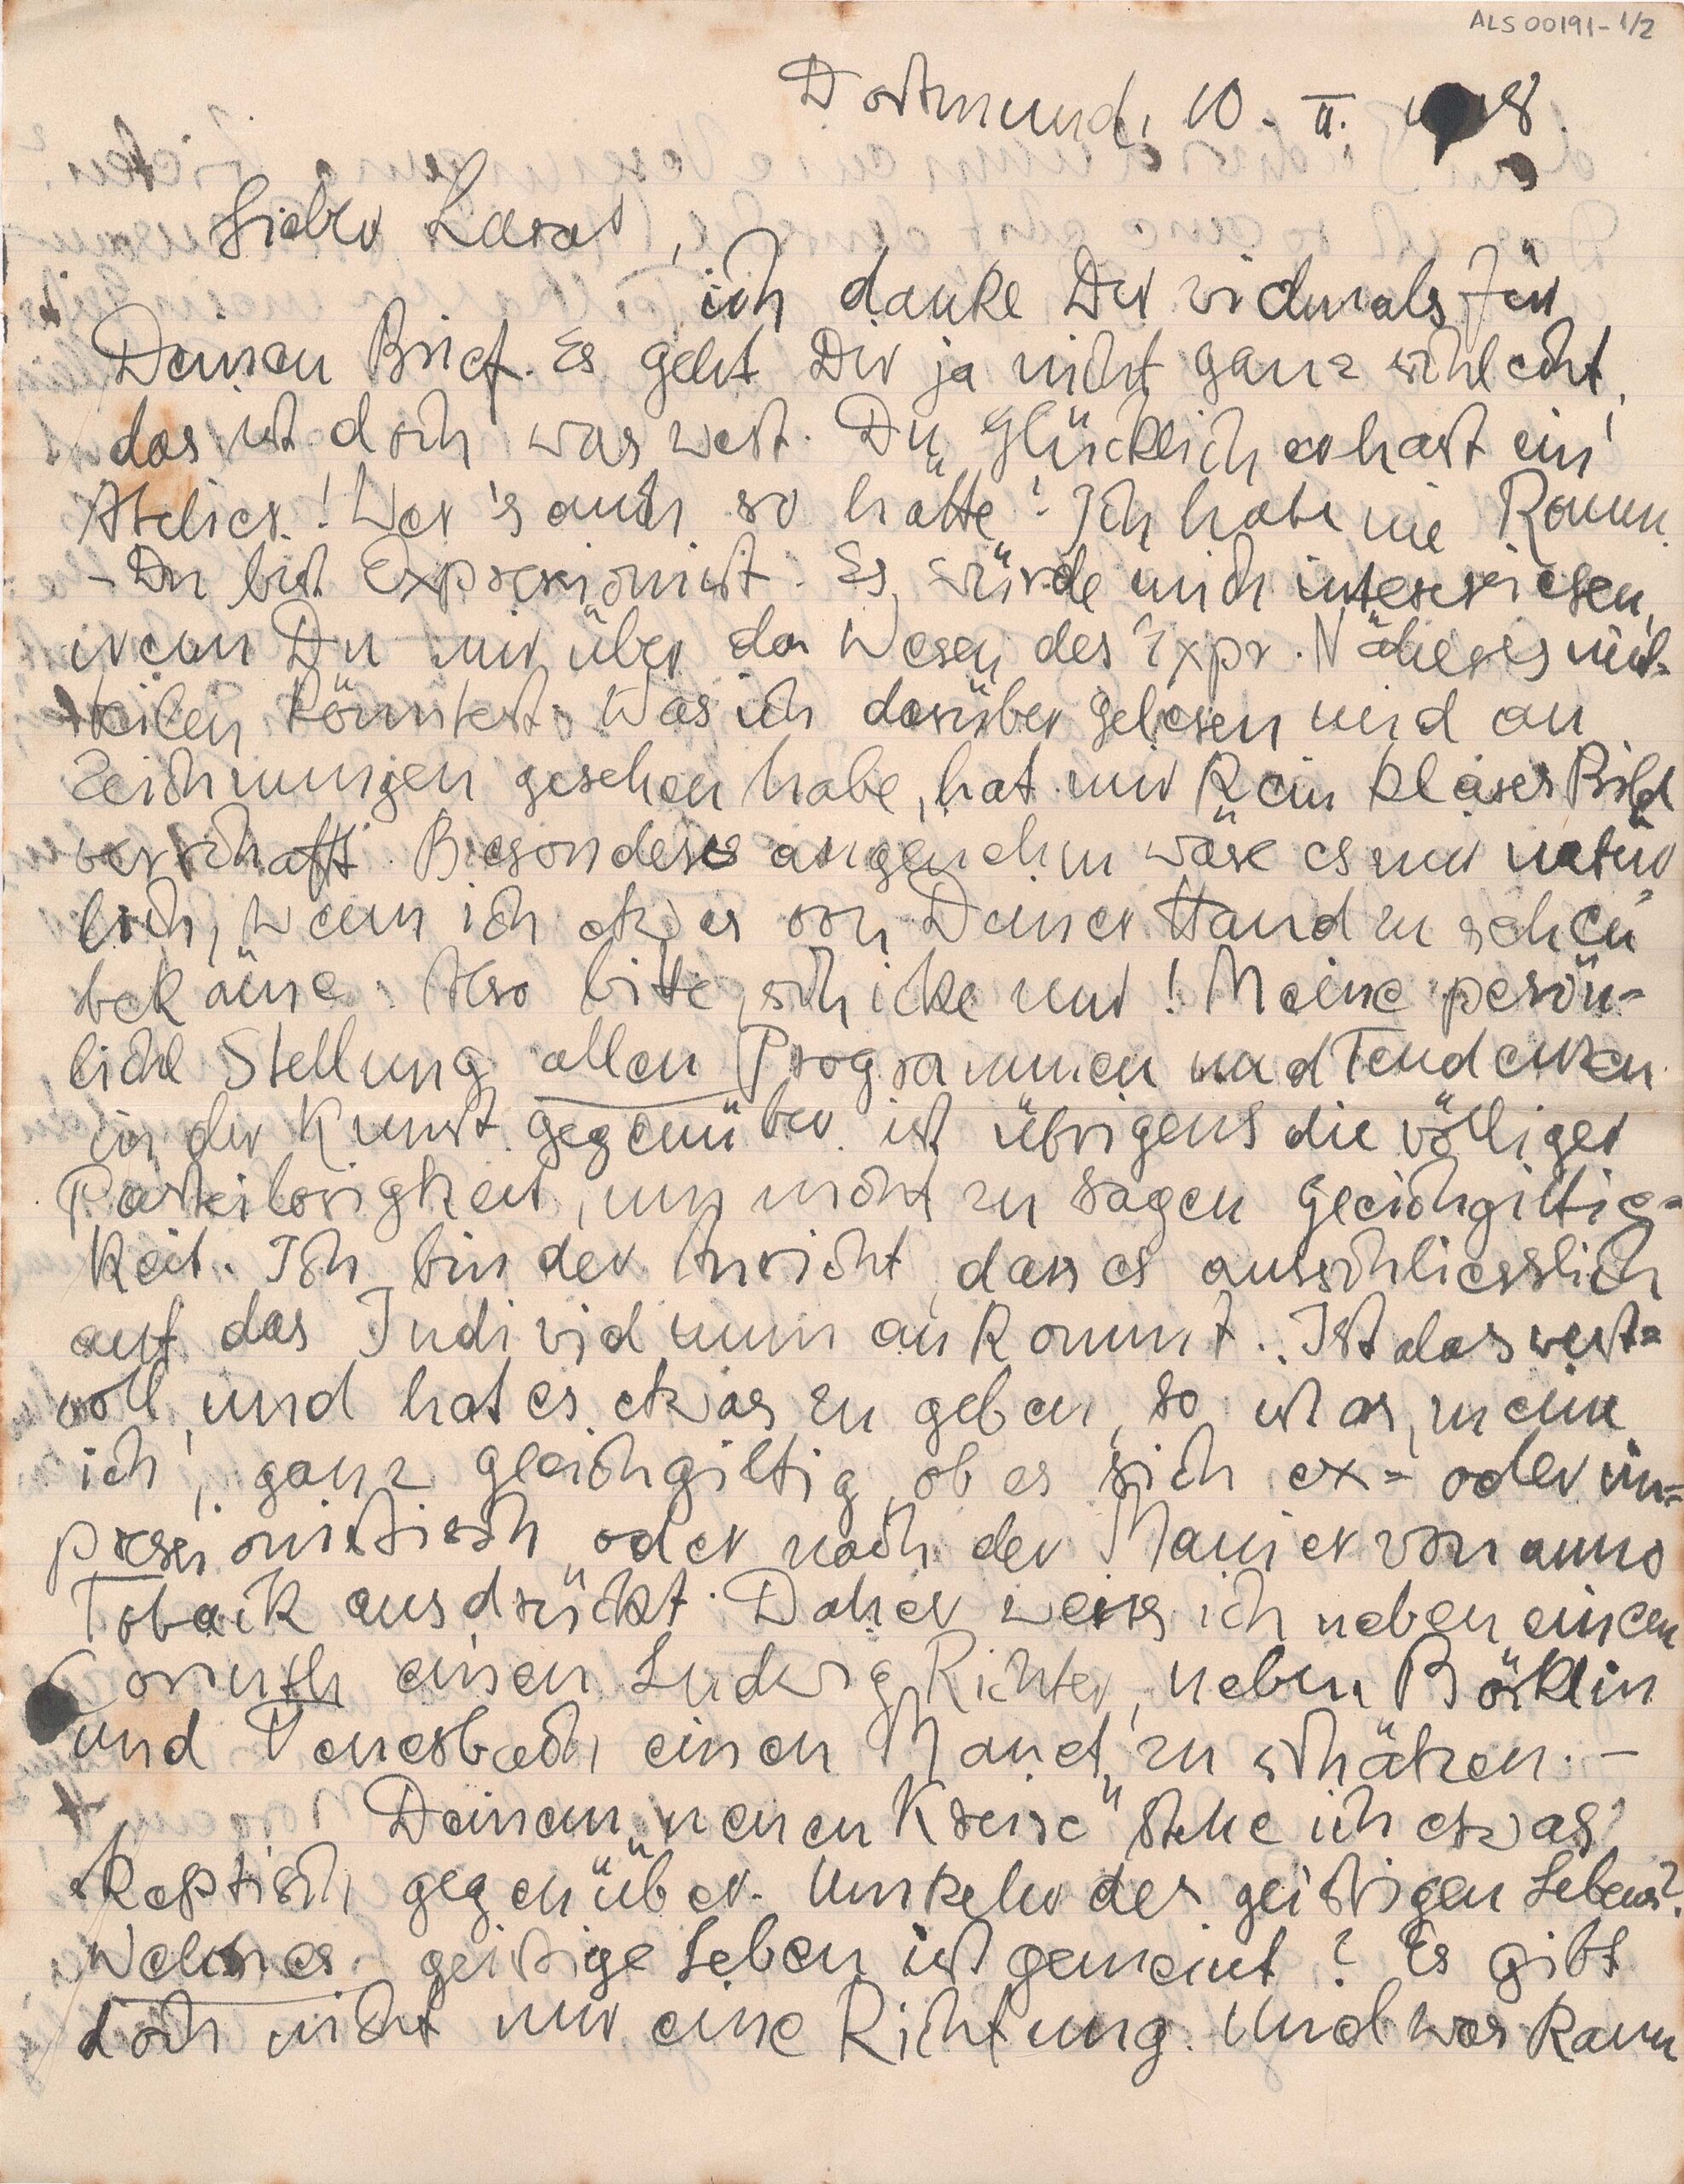 ALS 00191-1/2
Dortmund, 10. II. 8.
Lieber Lasar,
ich danke Dir vielmals für
Deinen Brief. Es geht Dir ja nicht ganz schlecht,
das ist doch was wert. Du Glücklicher hast ein
Atelier! Wer's auch so hätte! Ich habe nie Raum.
- Du bist Expressionist. Es würde mich interessieren,
wenn Du mir über das Wesen des Expr. Näheres mit-
teilen könntest. Was ich darüber gelesen und an
Zeichnungen gesehen habe, hat mir kein klares Bild
verschafft. Besonders angenehm wäre es mir natür
lich, wenn ich etwas von Deiner Hand zu sehen
bekäme. Also bitte, schicke mir! Meine persön-
liche Stellung allen Programmen und Tendenzen
in der Kunst gegenüber ist übrigens die völliger
Parteilosigkeit, um nicht zu sagen Gleichgiltig=
keit. Ich bin der Ansicht, dass es ausschliesslich
auf das Individuum ankommt. Ist das wert=
voll, und hat es etwas zu geben, so ist es, meine
ich, ganz gleichgiltig, ob es sich ex= oder im=
pressionistisch oder nach der Manier von anno
Toback ausdrückt. Daher weiss ich neben einem
Corinth einen Ludwig Richter, neben Böcklin
und Feuerbach einen Manet zu schätzen. -
Deinem "neuen Kreise" stehe ich etwas
skeptisch gegenüber. Umkehr des geistigen Lebens?
Welches geistige Leben ist gemeint? Es gibt
doch nicht nur eine Richtung. Und was kann